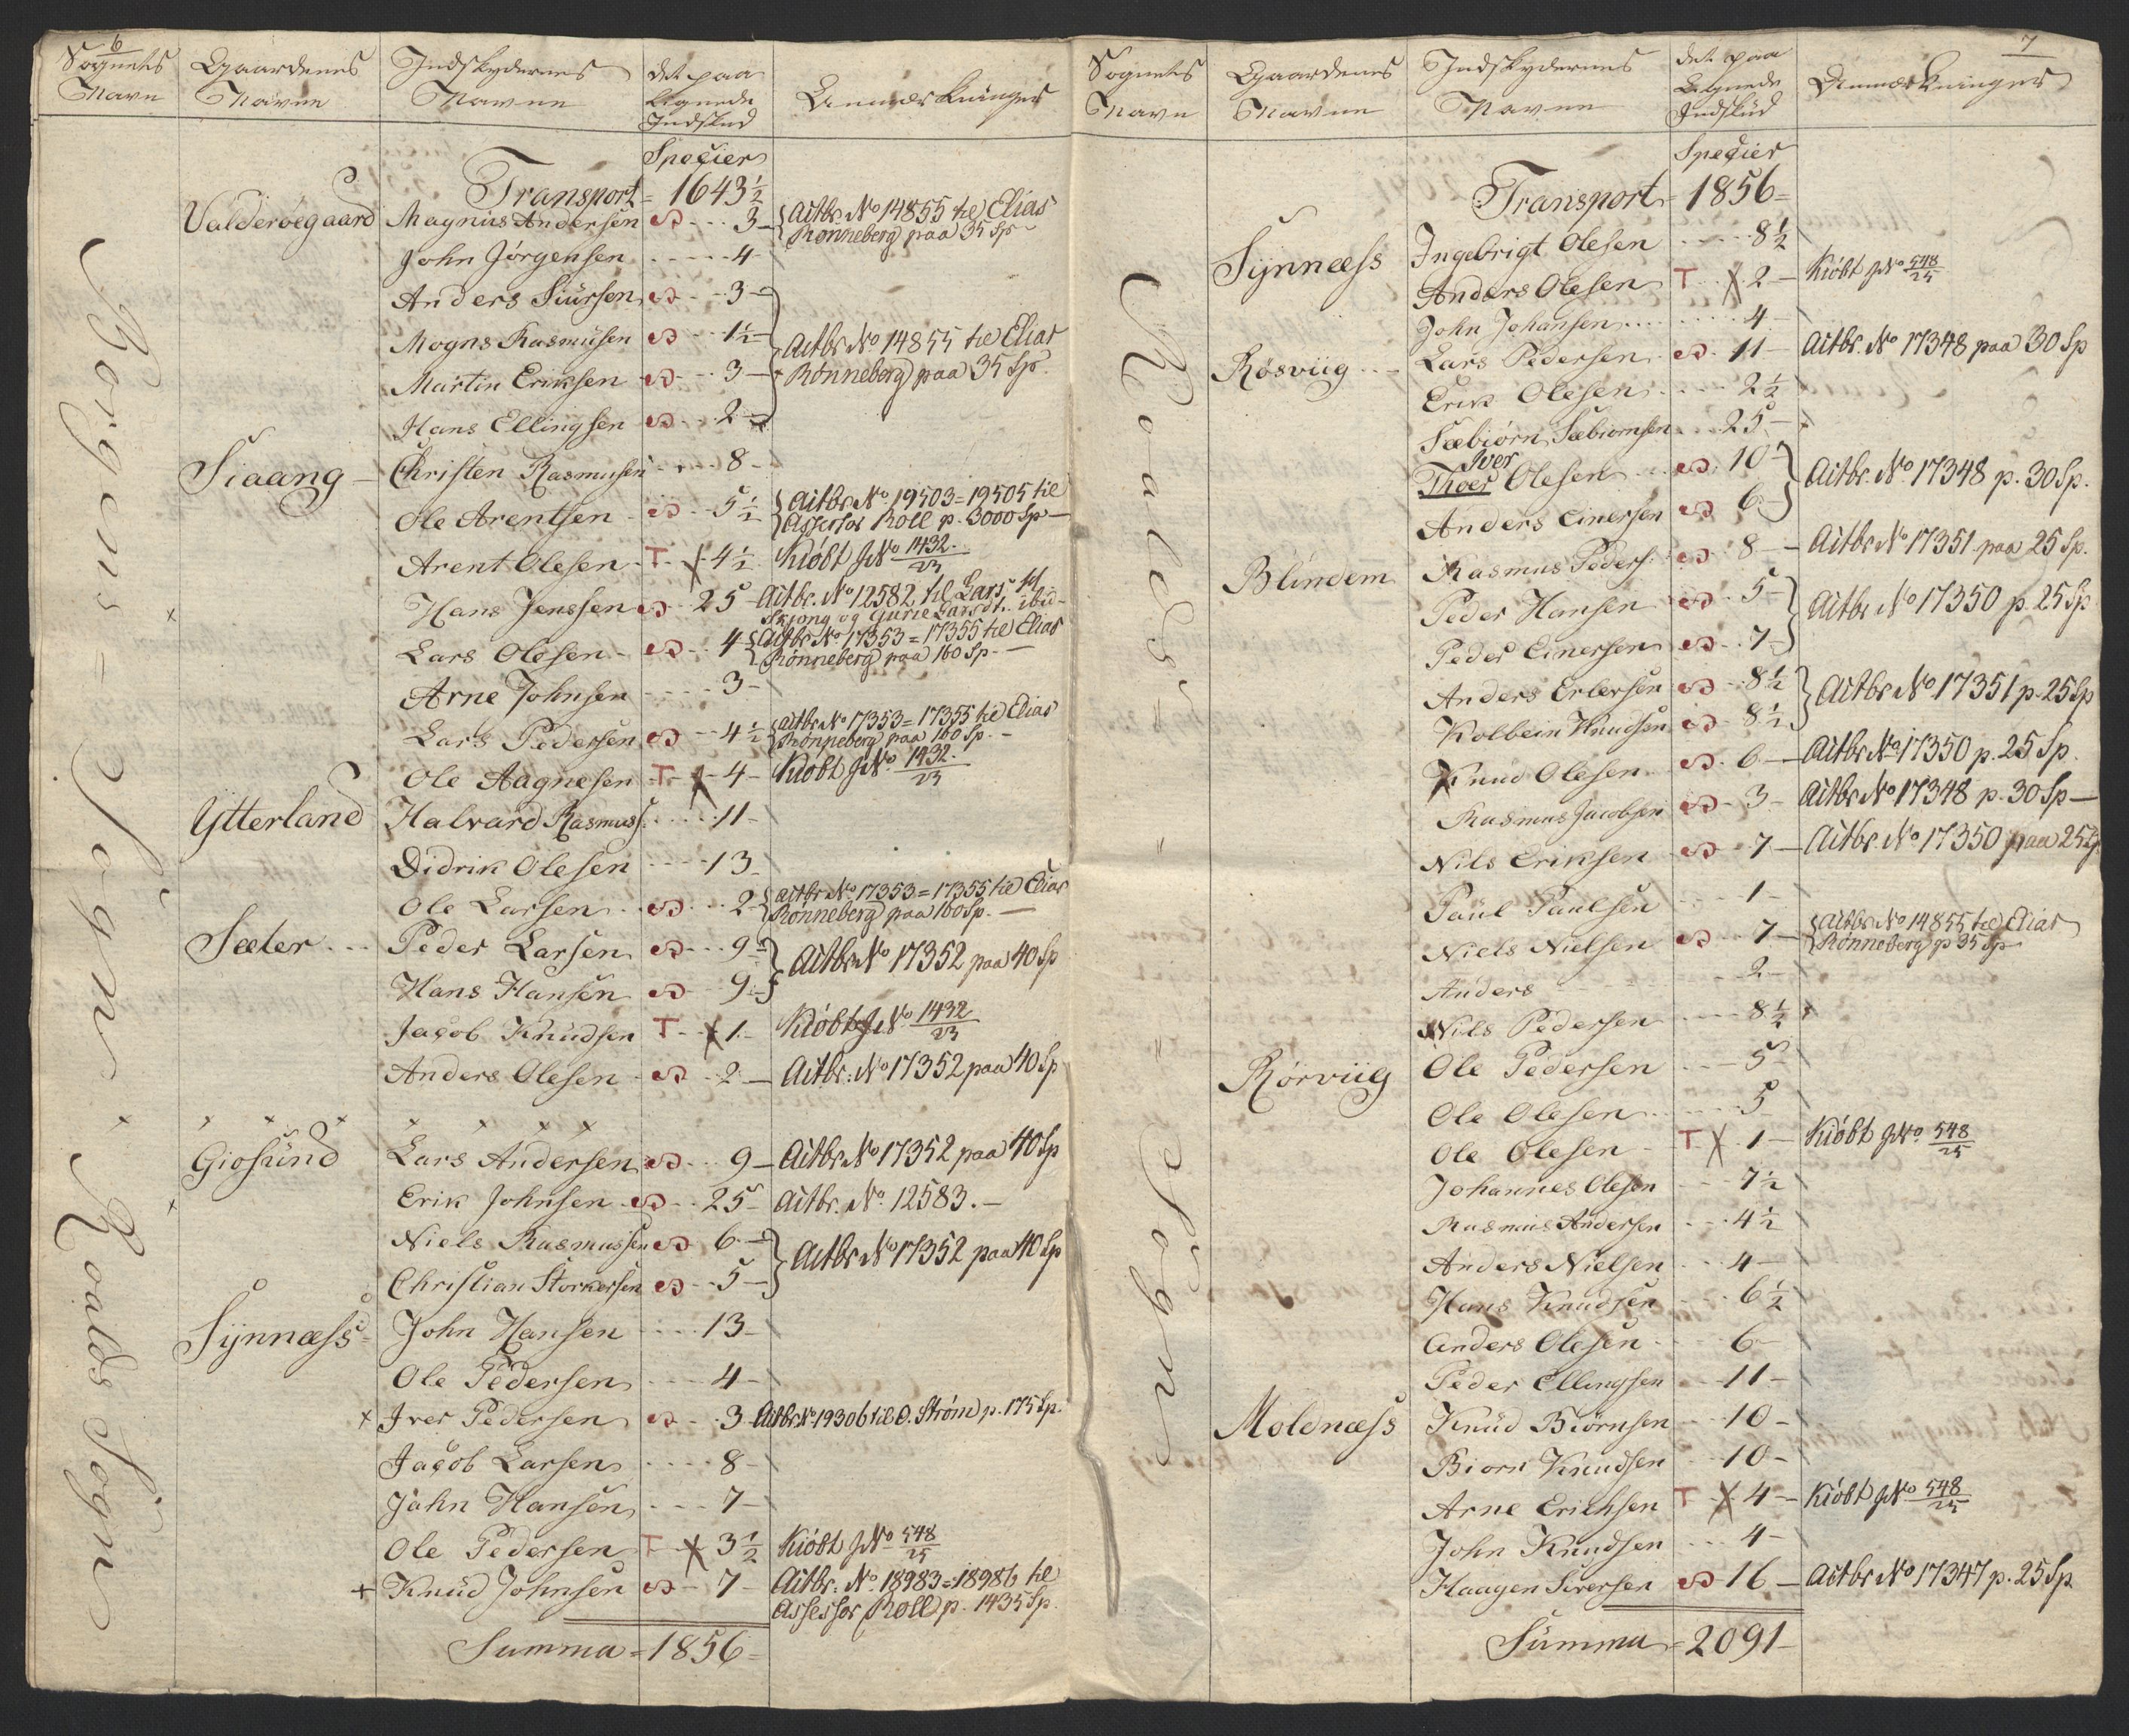 6
Sognets Navn
Gaardenes Navne
Indskydernes Navne
det paa lignede Indskud
Anmærkninger
Borgens = Sogn
Roalds Sogn
Specier
Transport = 1643½
Valderøegaard Magnus Andersen 3 Actbr. No 14855 til Elias
Rønneberg paa 35 Sp
John Jørgensen 4
Anders Siursen 3
Mogns Rasmusen 1½ Actbr No 14855 til Elias
Martin Eriksen 3 Rønneberg paa 35 Sp.
Hans Ellingsen 2
Siaang Christen Rasmusen 8
Ole Arentsen 5½ Actbr No. 19503 = 19505 til
Assessor Roll p. 3000 Sp
Arent Olesen T. X 4½ Kiøbt J No 1432/23
Hans Jenssen 25 Actbr. No 12582 til Lars
Skjong og Gurie Larsdt. ibid
Lars Olesen 4 Actbr No 17353 = 17355 til Elias
Rønneberg paa 160 Sp.
Arne Johnsen 3
Lars Pedersen 4½ Actbr No 17353 = 17355 til Elias
Rønneberg paa 160 Sp.
Ole Aagnesen T X 4 Kiøbt J No. 1432/23
Ytterland Halvard Rasmuss. 11
Didrik Olesen 13
Ole Larsen 2 Actbr No. 17353 = 17355 til Elias
Rønneberg paa 160 Sp.
Sæter Peder Larsen 9½ Actbr No 17352 paa 40 Sp
Hans Hansen 9
Jacob Knudsen T X 1 Kiøbt J No. 1432/23
Anders Olesen 2 Actbr: No 17352 paa 40 Sp
Giosund Lars Andersen 9 Actbr No 17352 paa 40 Sp
Erik Johnsen 25 Actbr. No. 12583.
Niels Rasmussen 6 Actbr No 17352 paa 40 Sp
Christian Storkersen 5
Synnæss John Hansen 13
Ole Pedersen 4
x Iver Pedersen 3 Actbr No 19306 til O. Strøm p. 175 Sp.
Jacob Larsen 8
Jahn Hansen 7
Ole Pedersen T X 3½ Kiøbt J No 548/25
+ Knud Johnsen 7 Actbr. No. 18983 = 18986 til
Assessor Roll p. 1435 Sp.
Summa = 1856 =
7
Sognets Navn
Gaardenes Navne
Indskydernes Navne
det paa Lignede Indskud
Anmærkninger
Roalds = Sogn
Specier
Transport = 1856 =
Synnæss Ingebrigt Olesen 8½
Anders Olesen T X 2 Kiøbt J No 548/25
John Johansen 4
Røsviig Lars Pedersen 11 Actbr. No 17348 paa 30 Sp
Erik Olesen 2½
Sæbiørn Sæbiørnsen 25
Iver
Thoer Olesen 10 Actbr. No 17348 p. 30 Sp.
Anders Einersen 6
Blindem Rasmus Peders: 8 Actbr No 17351 paa 25 Sp.
Peder Hansen 5 Actbr No 17350 p. 25 Sp
Peder Einersen 7
Anders Erlersen 8½ Actbr No 17351 p. 25 Sp
Kolbein Knudsen 8½
Knud Olesen 6 Actbr No 17350 p. 25 Sp.
Rasmus Jacobsen 3 Actbr No 17348 p. 30 Sp
Nils Eriksen 7 Actbr. No 17350 paa 25 Sp.
Paul Paulsen 1
Niels Nielsen 7 Actbr No 14855 til Elias
Rønneberg p 35 Sp
Anders 2
Nils Pedersen 8½
Rørviig Ole Pedersen 5
Ole Olesen 5
Ole Olesen T X 1 Kiøbt J No 548/25
Johannes Olesen 7½
Rasmus Andersen 4½
Anders Nielsen 4
Hans Knudsen 6½
Anders Olesen 6
Peder Ellingsen 11
Moldnæss Knud Biørnsen 10
Biørn Knudsen 10
Arne Erichsen T X 4 Kiøbt J No 548/25
John Knudsen 4
Haagen Siversen 16 Actbr No 17347 p. 25 Sp
Summa = 2091